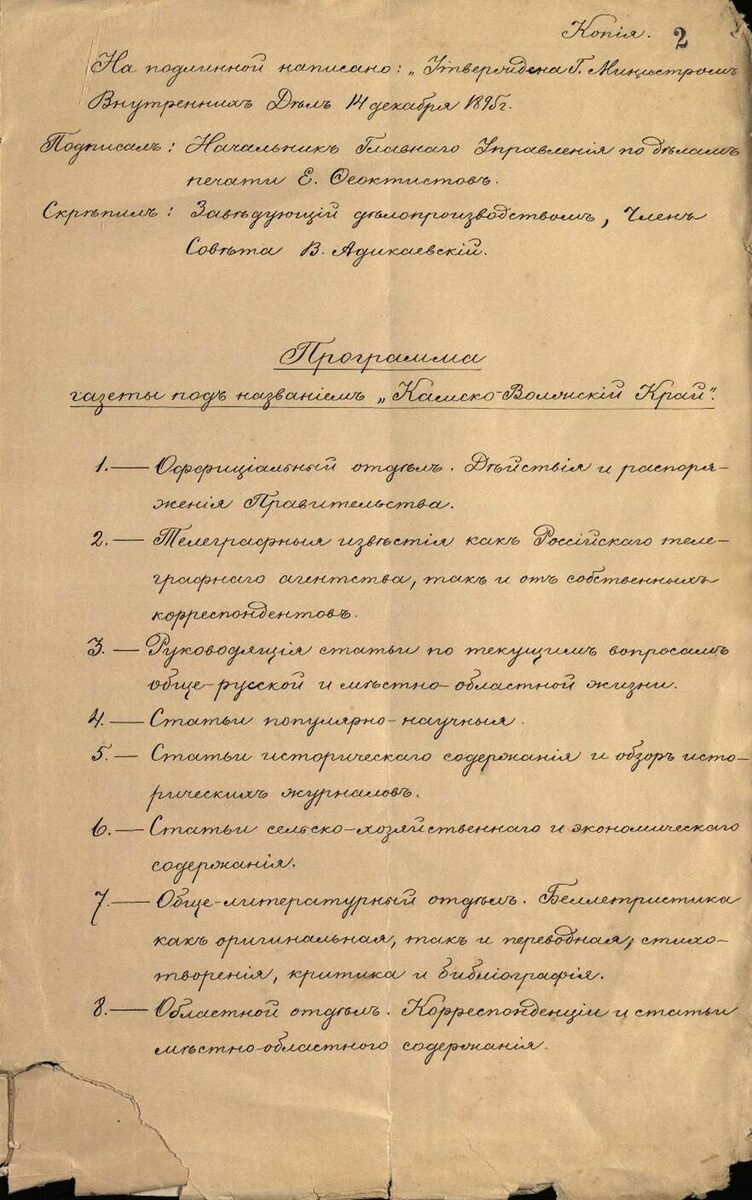 Копія. 2
На подлинной написано: „Утверждена Г. Министромъ
Внутреннихъ Дѣлъ 14 декабря 1895 г.
Подписалъ: Начальникъ Главнаго Управленія по дѣламъ
печати Е. Ѳеоктистовъ.
Скрѣпилъ: Завѣдующій дѣлопроизводствомъ, Членъ
Совѣта В. Адикаевскій.
Программа
газеты подъ названіемъ „Камско-Волжскій Край".
1.— Оффиціальный отдѣлъ. Дѣйствія и распоря-
женія Правительства.
2.— Телеграфныя извѣстія какъ Россійскаго теле-
графнаго агентства, такъ и отъ собственныхъ
корреспондентовъ.
3.— Руководящія статьи по текущимъ вопросамъ
обще-русской и мѣстно-областной жизни.
4.— Статьи популярно-научныя.
5.— Статьи историческаго содержанія и обзоръ исто-
рическихъ журналовъ.
6.— Статьи сельско-хозяйственнаго и экономическаго
содержанія.
7.— Обще-литературный отдѣлъ. Беллетристика
какъ оригинальная, такъ и переводная, стихо-
творенія, критика и библіографія.
8.— Областной отдѣлъ. Корреспонденціи и статьи
мѣстно-областного содержанія.